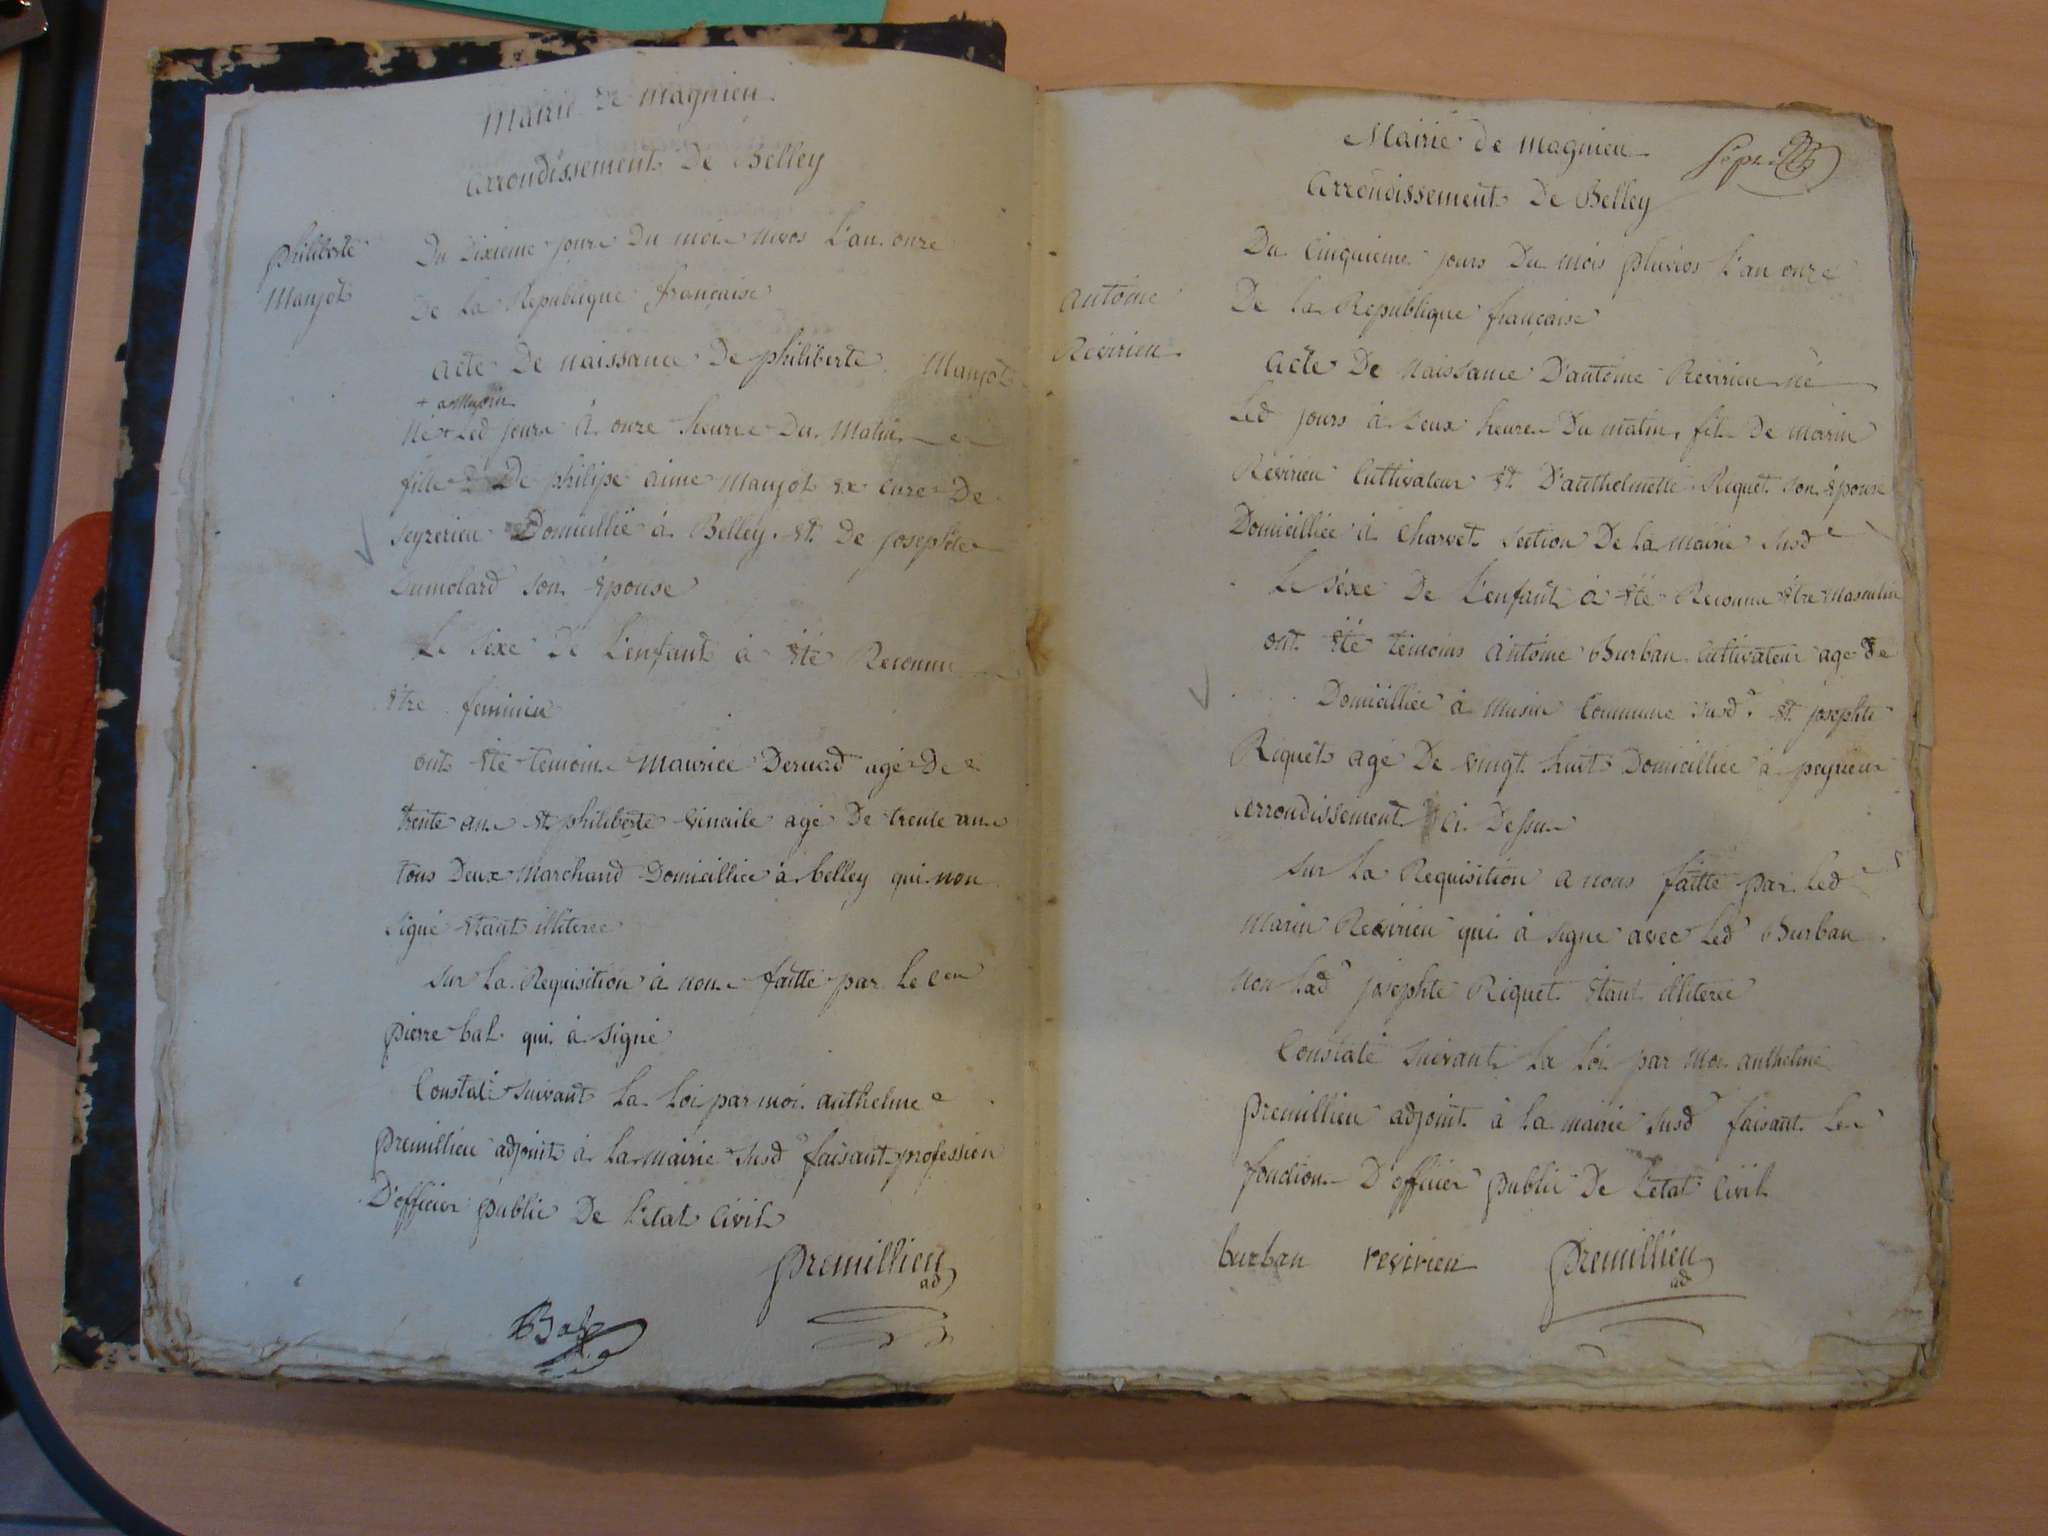 Mairie de magnieu
arrondissement De Belley
philiberte
Manjot
Du Dixieme jour Du moi nivos L'an onze
De la Republique française
acte De naissance De philiberte Manjot
+ a Musin
Né + Led jour à onze heure Du Matin
fille De philipe aime Manjot ex cure De
seyzerieu Domicillié à Belley. et De josephte
Dumolard son épouse
Le séxe De L'enfant à été Reconnu
être feminin
ont été temoin Maurice Deruad agé De
trente an et philiberte agé De trente an
tous Deux Marchand Domicilliée à belley qui non
signé étant illiteree
sur la Requisition à nou faitte par le cen
pierre bal qui à signé
Constaté suivant La Loi par moi anthelme
premillieu adjoint à la mairie susd faisant profession
D'officier public De L'etat Civil
premillieu
ad
Bal
Mairie de magnieu
arrondissement De Belley
antoine
Revirieu
Du Cinquieme jours Du mois pluvios L'an onze
De la Republique française
acte De Naissance D'antoine Revirieu né
Led jours à Deux heure Du matin, fil De marin
Revirieu Cultivateur et D'anthelmette Riquet son épouse
Domicilliée à Charvet section De la mairie susd
Le séxe De L'enfant à été Reconnu être masculin
ont été témoins antoine Burban Cultivateur age De
Domicilliée à Musin Commune susd. et josephte
Riquet age De vingt huit Domicilliée à peyrieu
arrondissement Ci Dessu
sur la Requisition a nous faitte par Led
Marin Revirieu qui à signe avec Led Burban
non Lad josephte Riquet étant illiteree
Constaté suivant La Loi par Moi anthelme
premillieu adjoint à la mairie susd faisant Le
fonction D'officier public De L'etat Civil
burban revirieu premillieu
ad